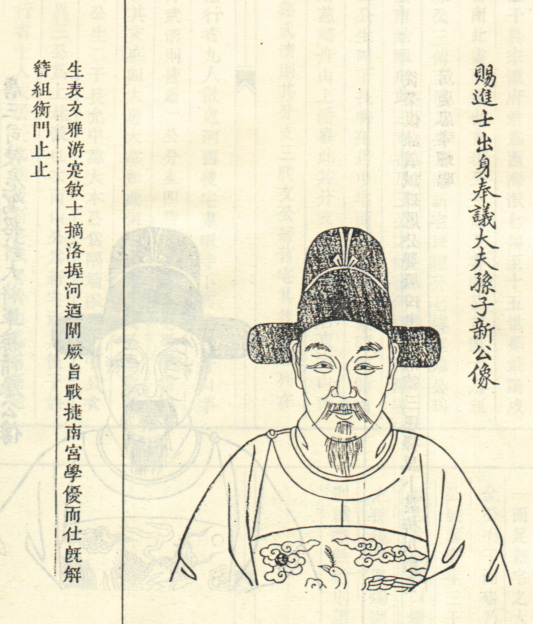 賜進士出身奉議大夫孫子新公像
生表文雅游寔敏士摘洛握河迺闡厥旨戰捷南宮學優而仕旣解
簪組衡門止止